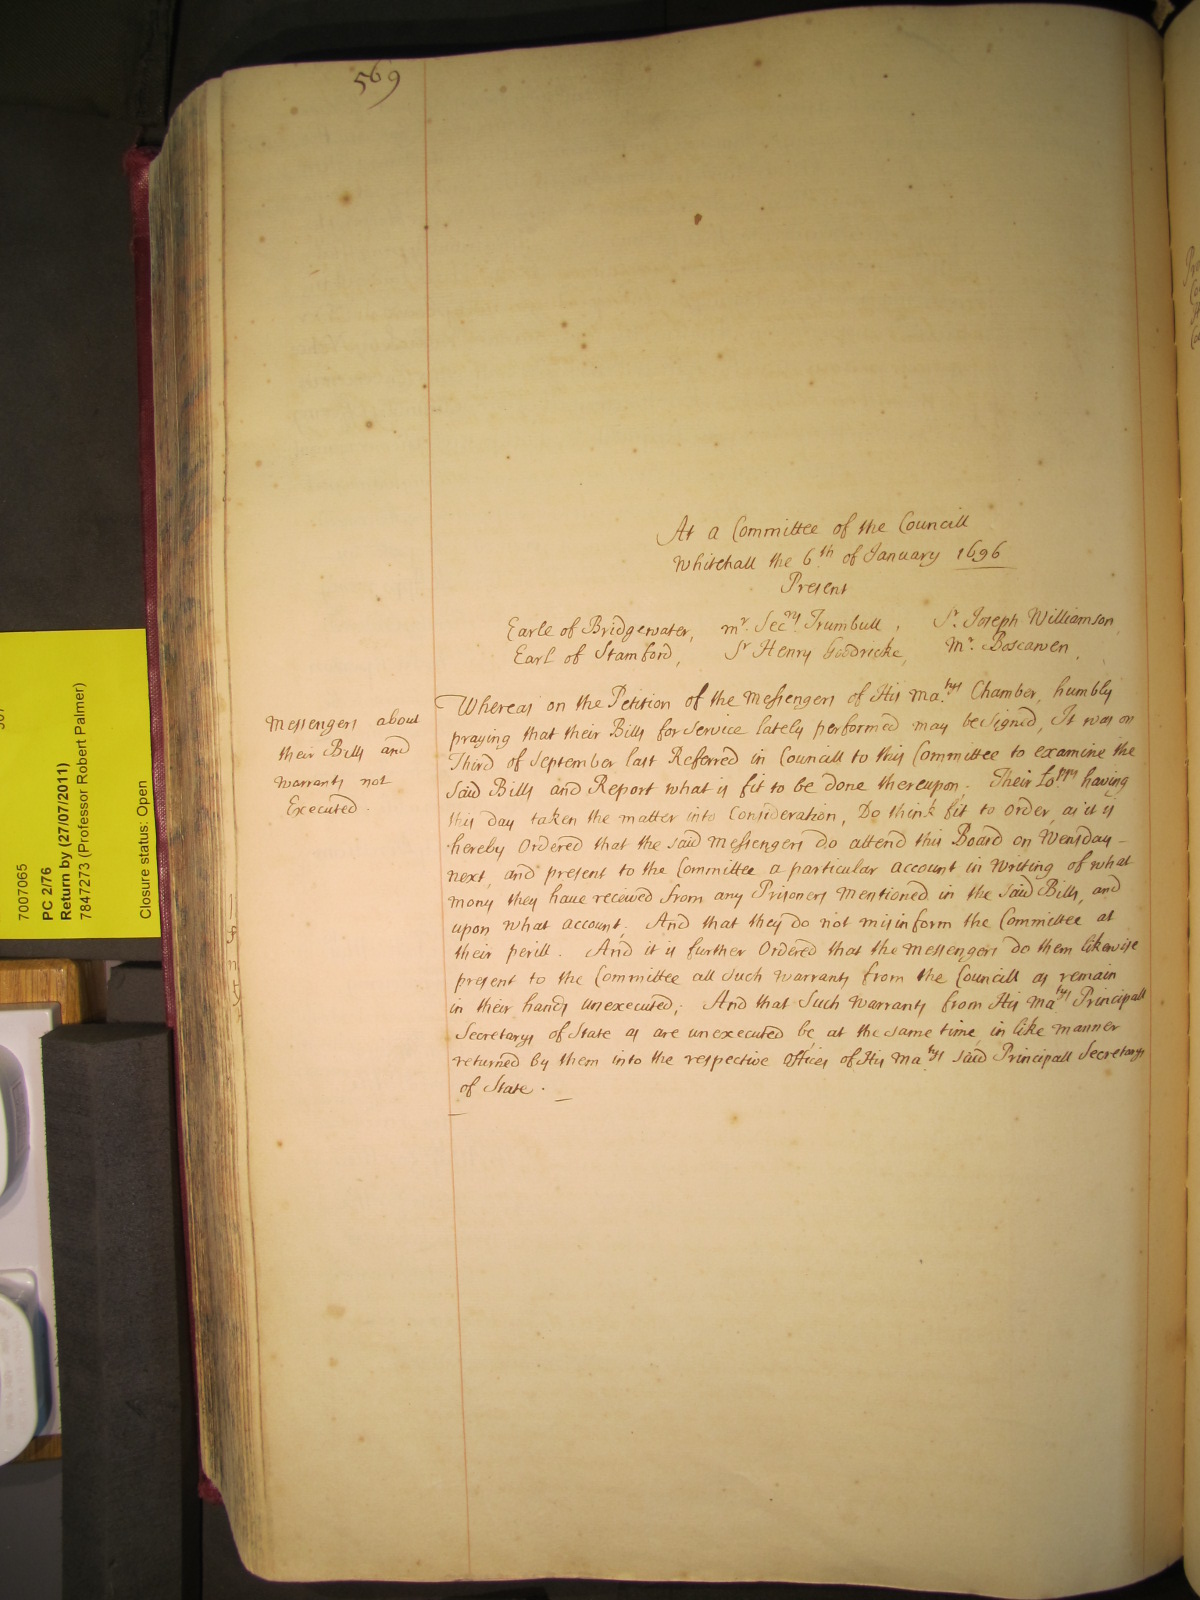 569
At a Committee of the Councill
Whitehall the 6th of January 1696
Present
Earle of Bridgewater, mr. Secry. Trumbull, Sr. Joseph Williamson,
Earl of Stamford, Sr Henry Goodricke, Mr. Boscawen,
Messengers about
their Bills and
warrants not
Executed.
Whereas on the Petition of the Messengers of His Ma.tys Chamber, humbly
praying that their Bills for service lately performed may be signed, It was on
Third of September last Referred in Councill to this Committee to examine the
said Bills and Report what is fit to be done thereupon. Their Lo.pps having
this day taken the matter into Consideration, Do think fit to order, as it is
hereby Ordered that the said Messengers do attend this Board on Wensday -
next, and present to the Committee a particular account in writing of what
mony they have received from any Prisoners mentioned in the said Bills, and
upon what account; And that they do not misinform the Committee at
their perill. And it is further Ordered that the Messengers do them likewise
present to the Committee all such warrants from the Councill as remain
in their hands unexecuted; And that such warrants from His Ma.tys Principall
Secretarys of State as are unexecuted be at the same time in like manner
returned by them into the respective Offices of His Ma.tys said Principall Secretarys
of State.
7007065
PC 2/76
Return by (27/07/2011)
7847273 (Professor Robert Palmer)
Closure status: Open